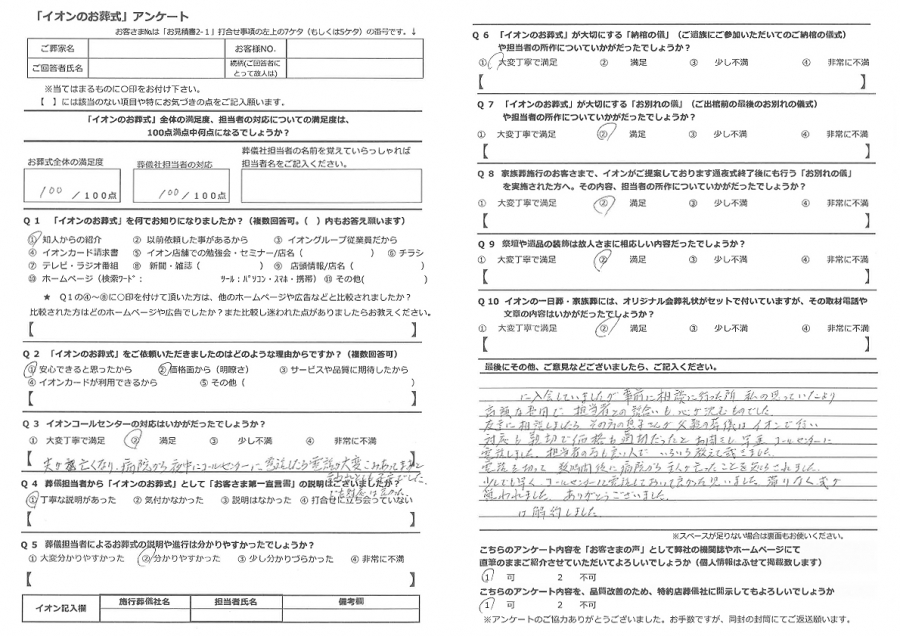 「イオンのお葬式」アンケート
お客さまNo.は「お見積書2-1」打合せ事項の左上の7ケタ（もしくは5ケタ）の番号です。↓
ご葬家名 お客様NO.
ご回答者氏名 続柄(ご回答者にとって故人は)
※当てはまるものに○印をお付け下さい。
【 】には該当のない項目や特にお気づきの点をご記入願います。
「イオンのお葬式」全体の満足度、担当者の対応についての満足度は、
100点満点中何点になるでしょうか？
お葬式全体の満足度 葬儀社担当者の対応 葬儀社担当者の名前を覚えていらっしゃれば
担当者名をご記入ください。
100 /100点 100 /100点
Q１ 「イオンのお葬式」を何でお知りになりましたか？（複数回答可。（ ）内もお答え願います）
① 知人からの紹介 ② 以前依頼した事があるから ③ イオングループ従業員だから
④ イオンカード請求書 ⑤ イオン店舗での勉強会・セミナー/店名（ ） ⑥ チラシ
⑦ テレビ・ラジオ番組 ⑧ 新聞・雑誌（ ） ⑨ 店頭情報/店名（ ）
⑩ ホームページ（検索ワード： ツール：パソコン・スマホ・携帯） ⑪ その他( )
★ Q１の④～⑩に○印を付けて頂いた方は、他のホームページや広告などと比較されましたか？
比較された方はどのホームページや広告でしたか？また比較し迷われた点がありましたらお教えください。
【 】
Q２ 「イオンのお葬式」をご依頼いただきましたのはどのような理由からですか？（複数回答可）
① 安心できると思ったから ② 価格面から（明瞭さ） ③ サービスや品質に期待したから
④ イオンカードが利用できるから ⑤ その他（ ）
【 】
Q３ イオンコールセンターの対応はいかがだったでしょうか？
① 大変丁寧で満足 ② 満足 ③ 少し不満 ④ 非常に不満
夫が亡くなり、病院から夜中にコールセンターに電話したら電話が大変こみあって
Q４ 葬儀担当者から「イオンのお葬式」として"お客さま第一宣言書"の説明はございましたか？
① 丁寧な説明があった ② 気付かなかった ③ 説明はなかった ④ 打合せに立ち会っていない
【 】
Q５ 葬儀担当者によるお葬式の説明や進行は分かりやすかったでしょうか？
① 大変分かりやすかった ② 分かりやすかった ③ 少し分かりづらかった ④ 非常に不満
【 】
イオン記入欄 施行葬儀社名 担当者氏名 備考欄
Q６ 「イオンのお葬式」が大切にする「納棺の儀」（ご遺族にご参加いただいてのご納棺の儀式）
や担当者の所作についていかがだったでしょうか？
① 大変丁寧で満足 ② 満足 ③ 少し不満 ④ 非常に不満
【 】
Q７ 「イオンのお葬式」が大切にする「お別れの儀」（ご出棺前の最後のお別れの儀式）
や担当者の所作についていかがだったでしょうか？
① 大変丁寧で満足 ② 満足 ③ 少し不満 ④ 非常に不満
【 】
Q８ 家族葬施行のお客さまで、イオンがご提案しております通夜式終了後にも行う「お別れの儀」
を実施された方へ。その内容、担当者の所作についていかがだったでしょうか？
① 大変丁寧で満足 ② 満足 ③ 少し不満 ④ 非常に不満
【 】
Q９ 祭壇や遺品の装飾は故人さまに相応しい内容だったでしょうか？
① 大変丁寧で満足 ② 満足 ③ 少し不満 ④ 非常に不満
【 】
Q10 イオンの一日葬・家族葬には、オリジナル会葬礼状がセットで付いていますが、その取材電話や
文章の内容はいかがだったでしょうか？
① 大変丁寧で満足 ② 満足 ③ 少し不満 ④ 非常に不満
【 】
最後にその他、ご意見などございましたら、ご記入ください。
に入会していましたが事前に相談に行った所 私の思っていたより
高額な費用で 担当者との話合いも心が沈むものでした
友達に相談しましたら その方の息子さんが父親の葬儀はイオンで行い
対応も親切で価格も適切だったとお聞きし 早速コールセンターに
電話しました。担当者の方も良い人で いろいろ教えて頂きました。
電話を切って 数時間後に病院から主人が亡ったことを知らされました。
少しでも早くコールセンターに電話しておいて良かった思いました 滞りなく式が
終われました。ありがとうございました。
は解約しました。
※スペースが足りない場合は裏面もお使いください。
こちらのアンケート内容を「お客さまの声」として弊社の機関誌やホームページにて
直筆のままご紹介させていただいてよろしいでしょうか（個人情報はふせて掲載致します）
１ 可 ２ 不可
こちらのアンケート内容を、品質改善のため、特約店葬儀社に開示してもよろしいでしょうか
１ 可 ２ 不可
※アンケートのご協力ありがとうございました。お手数ですが、同封の封筒にてご返送願います。